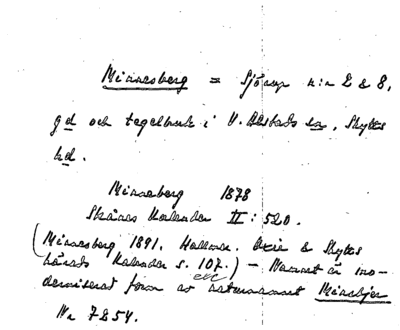 Minnesberg = Sjörup n:r 2 & 8,
gd och tegelbruk i V. Alstads sn, Skytts
hd.
Minneberg 1878
Skånes Kalender II: 520.
(Minnesberg 1891. Kallmer. Oxie & Skytts
härads Kalender s. 107.) – Namnet är mo-
derniserad form av naturnamnet
Nr 7854.